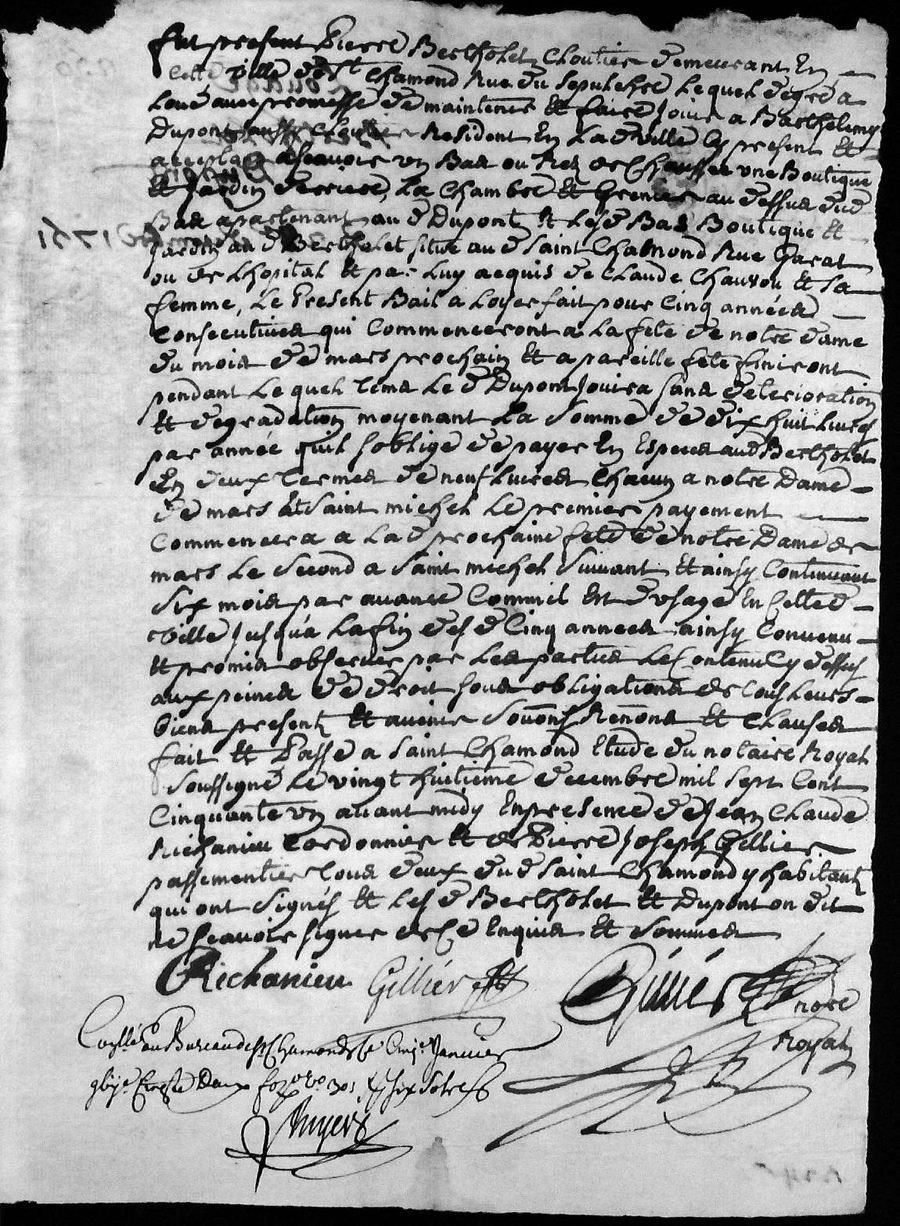 fut present Pierre Bertholet Cloutier demeurant En
Cette ville de St Chamond Rue du sepulchre Lequel degré a
Loué avec promesse de maintenir et faire Jouir a Barthelemy
Dupont aussi Cloutier Resident En La d ville Cy present et
acceptant scavoir un Bas ou Rez de Chaussée une Boutique
et Jardin derriere, La Chambre et Grenier au dessus dud
Bas apartenant au d Dupont et Lesd Bas Boutique et
Jardin au d Bertholet situé au d Saint Chamond Rue
ou de Lhopital et par Luy acquis de Claude Chauvou et sa
femme, Le Present Bail a Loyer fait pour Cinq années
Consecutives qui Commenceront a La fete de notre dame
du mois de mars prochain et a pareille fete finiront
pendant Le quel tems Le d Dupont Jouira sans deterioration
et degradation moyenant La Somme de dix huit Livres
par année quil soblige de payer En Especes aud Bertholet
En deux termes de neuf Livres Chacun a notre Dame
de mars et Saint michel Le premier payement
Commencera a La d prochaine fete de notre Dame de
mars Le Second a Saint michel Suivant et ainsy Continuant
Six mois par avance Comme il est dusage En Cette d
ville Jusqua La fin des d Cinq années ainsy Convenu
et promis observer par Les parties Le Contenu Cy dessus
aux peines de droit sous obligations de tous Leurs
biens present et avenir Renons et Clauses
fait et Passé a Saint Chamond Etude du notaire Royal
Soussigné Le vingt huitieme decembre mil sept Cent
Cinquante un avant midy En presence de Jean Claude
Richanieu Cordonnier et de Pierre Joseph Gillier
passementier tous deux du d Saint Chamond y habitant
qui ont Signés et Les d Bertholet et Dupont on dit
ne Scavoir signer de Ce Enquis et Sommes
Richanieu Gillier
notre
Royal
Conllé au Bureau de St Chamond Le Janvier
six sols